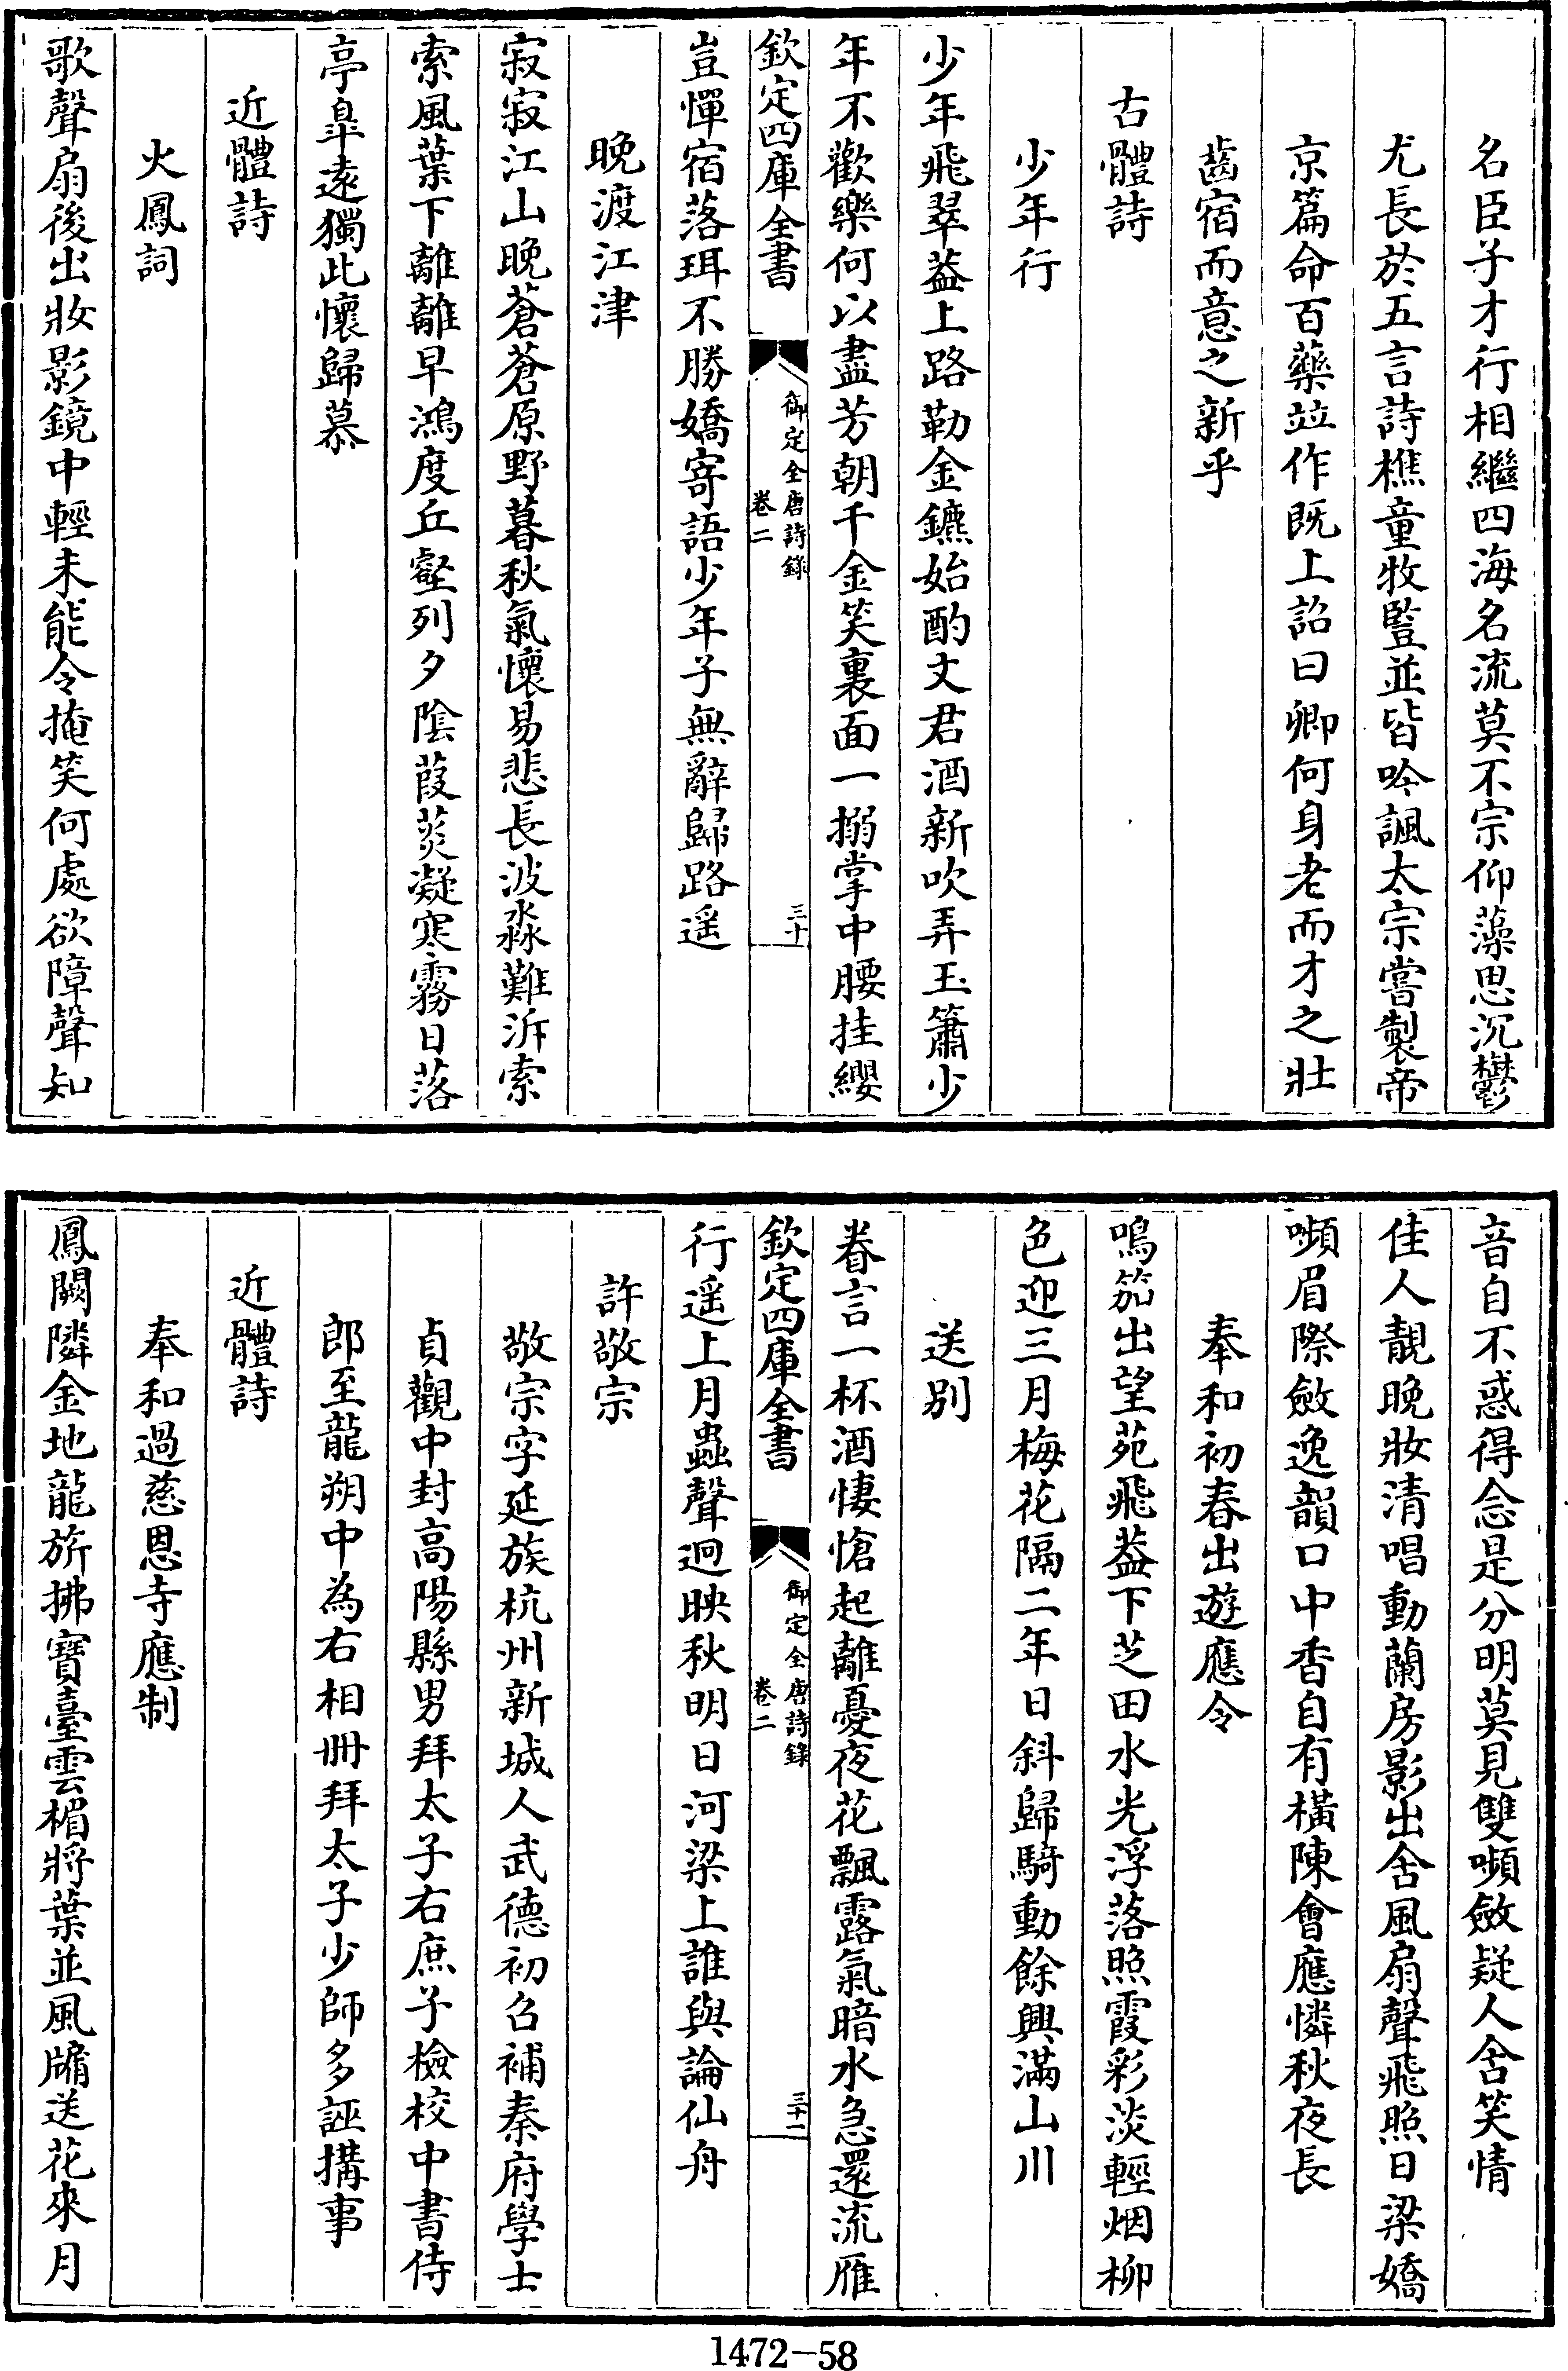 名臣子才行相繼四海名流莫不宗仰藻思沉鬱
尤長於五言詩樵童牧豎並皆吟諷太宗嘗製帝
京篇命百藥竝作既上詔曰卿何身老而才之壯
齒宿而意之新乎
古體詩
少年行
少年飛翠葢上路勒金鑣始酌文君酒新吹弄玉簫少
年不歡樂何以盡芳朝千金笑裏面一搦掌中腰挂纓
欽定四庫全書
御定全唐詩錄
卷二
三十
豈憚宿落珥不勝嬌寄語少年子無辭歸路遥
晚渡江津
寂寂江山晚蒼蒼原野暮秋氣懷易悲長波淼難泝索
索風葉下離離早鴻度丘壑列夕陰葭菼凝寒霧日落
亭臯遠獨此懷歸慕
近體詩
火鳳詞
歌聲扇後出妝影鏡中輕未能令掩笑何處欲障聲知
音自不惑得念是分明莫見雙嚬斂疑人含笑情
佳人靚晚妝清唱動蘭房影出含風扇聲飛照日梁嬌
嚬眉際斂逸韻口中香自有橫陳會應憐秋夜長
奉和初春出遊應令
鳴笳出望苑飛葢下芝田水光浮落照霞彩淡輕烟柳
色迎三月梅花隔二年日斜歸騎動餘興滿山川
送别
眷言一杯酒悽愴起離憂夜花飄露氣暗水急還流雁
欽定四庫全書
御定全唐詩錄
卷二
三十一
行遥上月蟲聲迥映秋明日河梁上誰與論仙舟
許敬宗
敬宗字延族杭州新城人武德初召補秦府學士
貞觀中封高陽縣男拜太子右庶子檢校中書侍
郎至龍朔中為右相冊拜太子少師多誣搆事
近體詩
奉和過慈恩寺應制
鳳闕隣金地龍旂拂寶臺雲楣將葉並風牖送花來月
1472-58